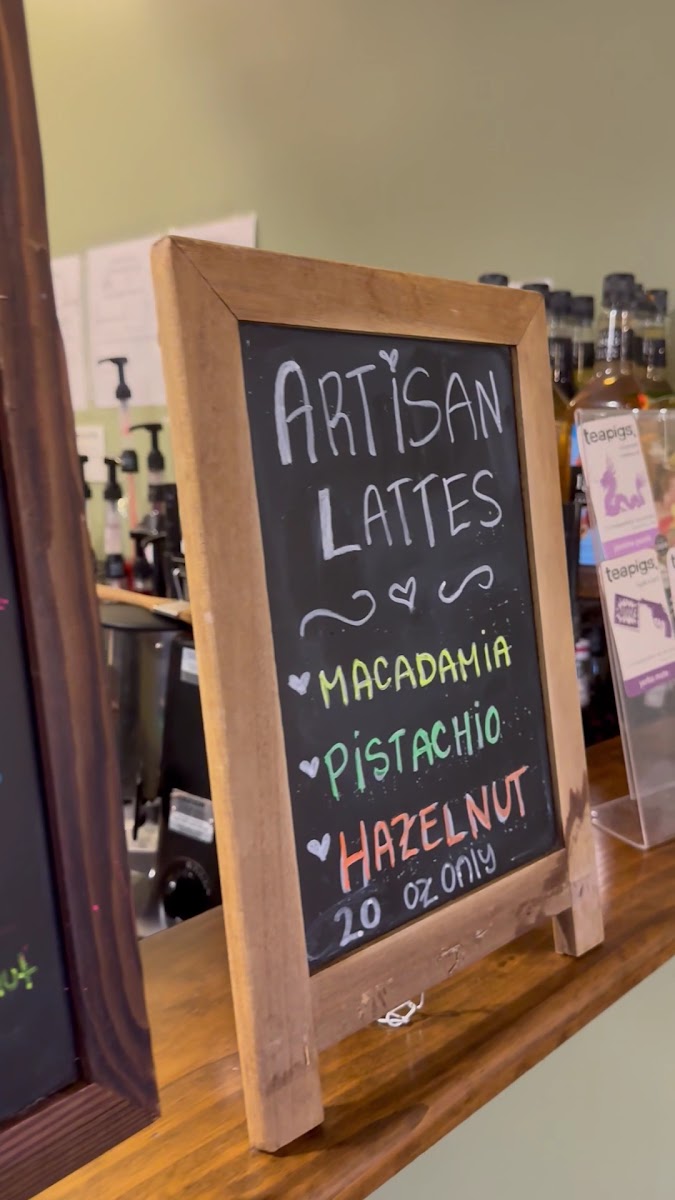 ARTiSAN
LATTES
MACADAMiA
PiSTACHiO
HAZELNUT
20 oz only
teapigs.
teapigs.